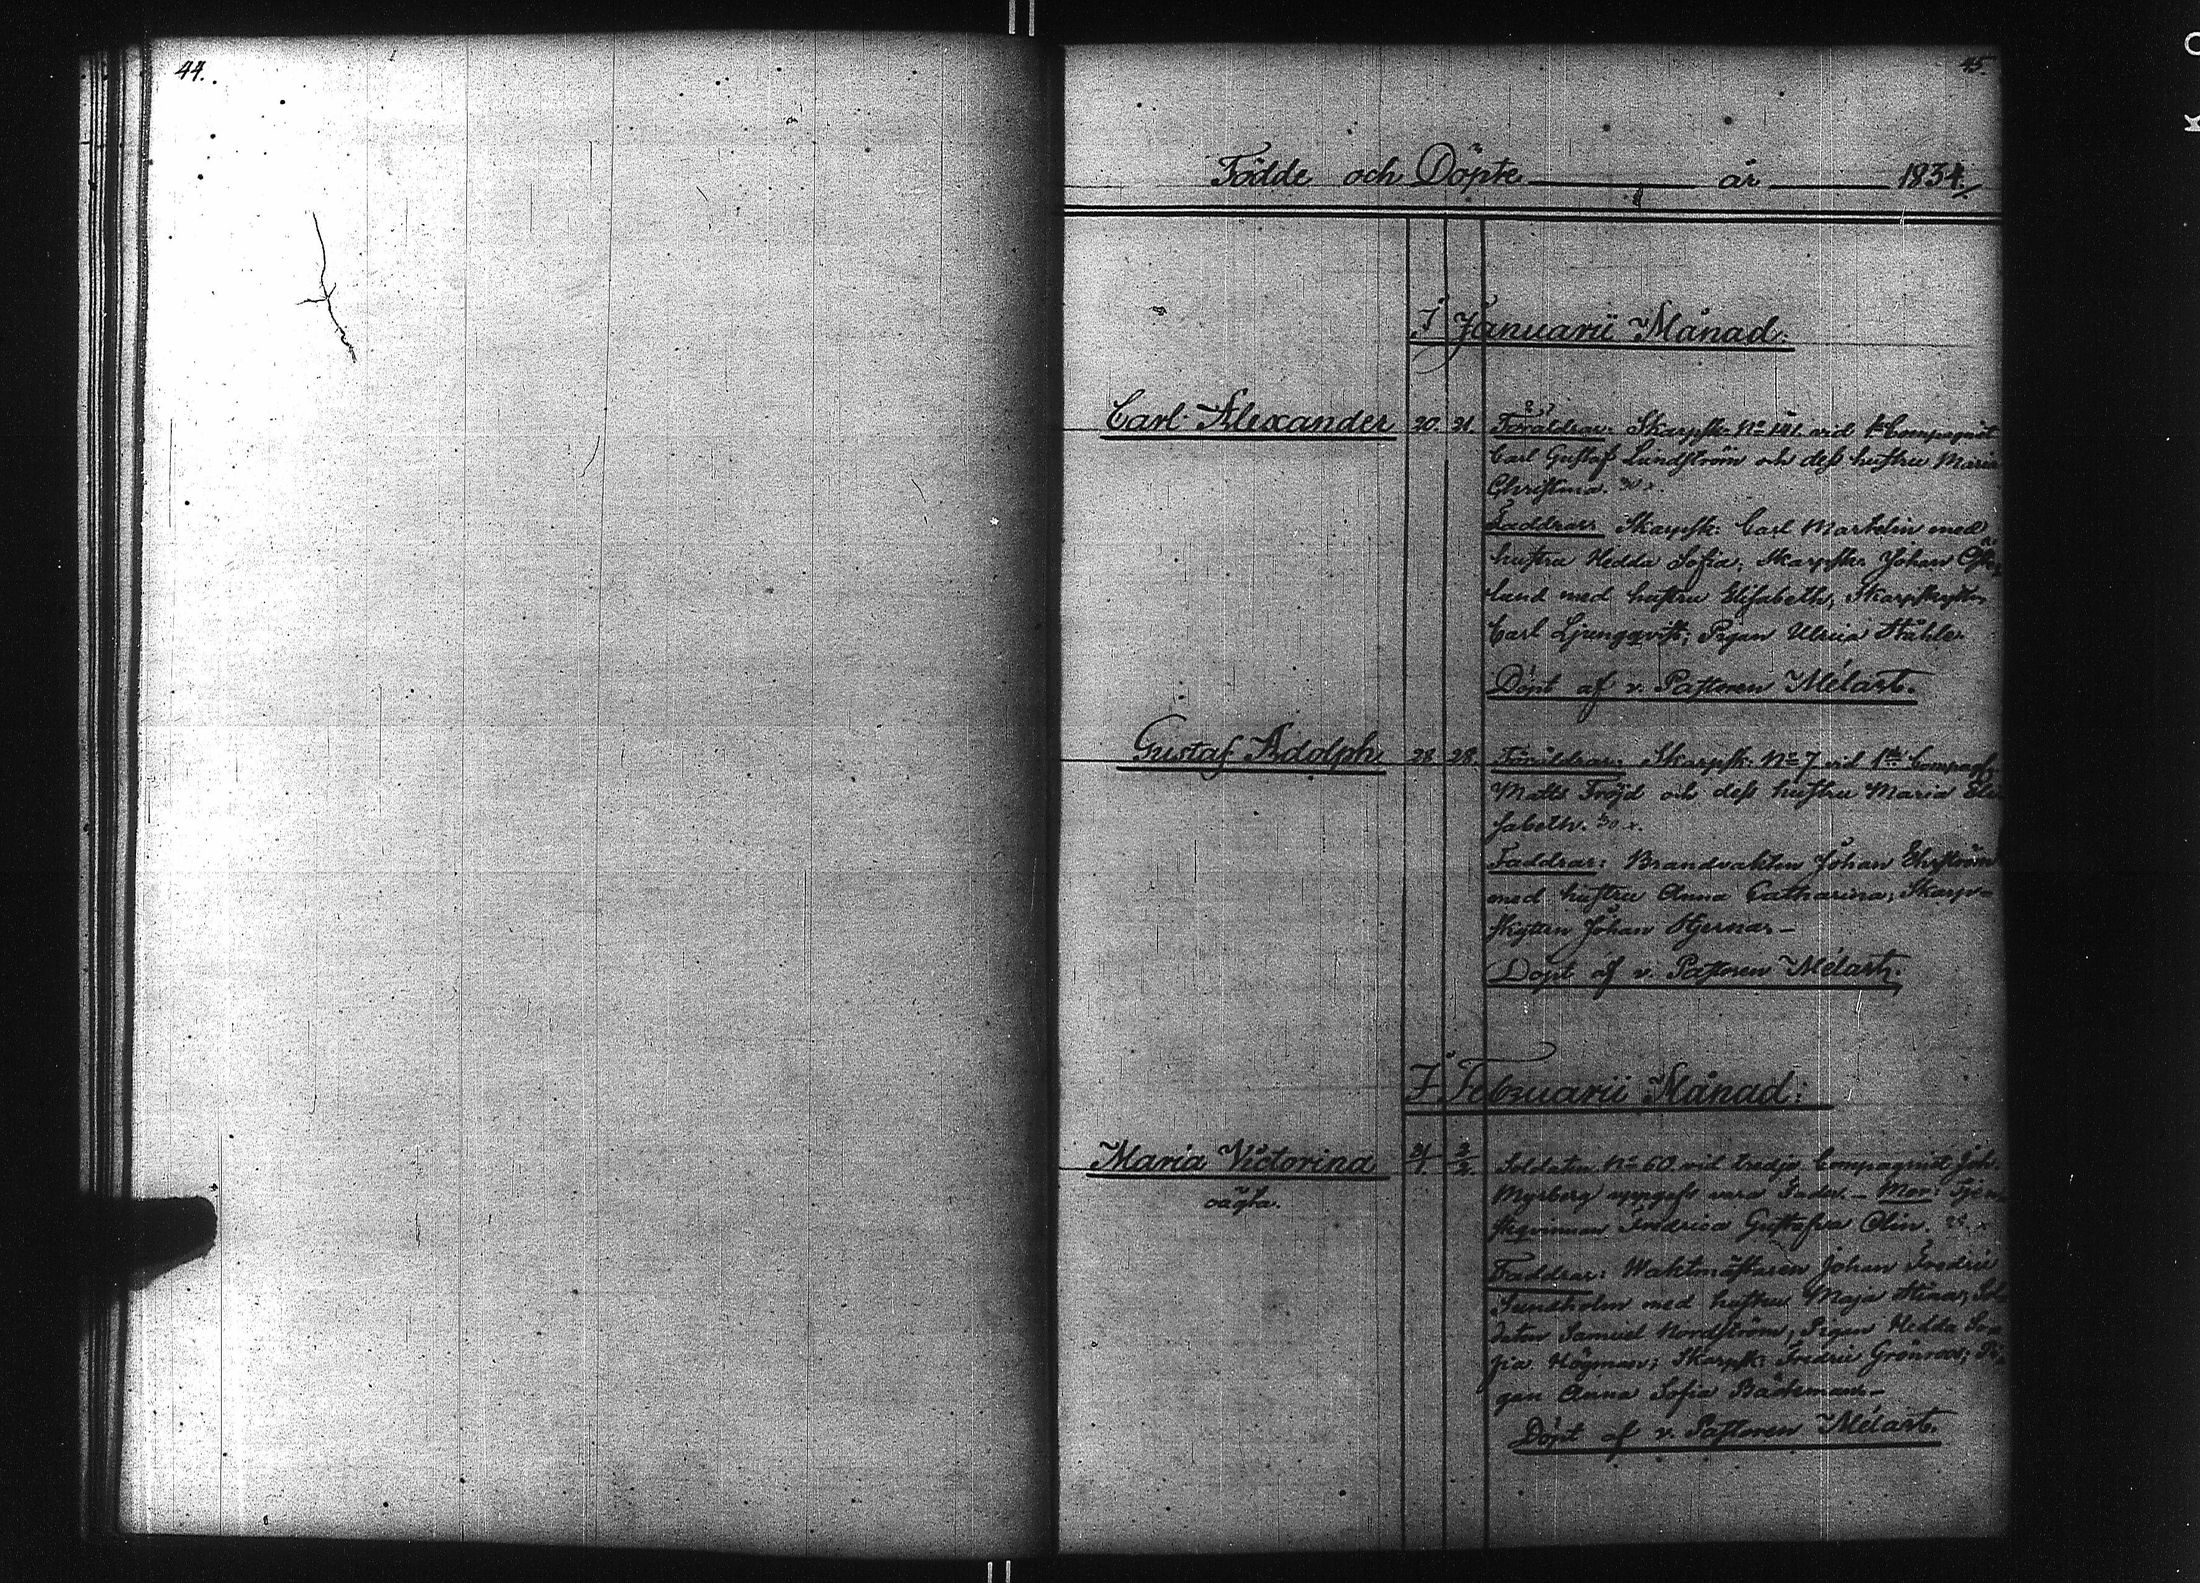 44.
45.
Födde och Döpte år 1834.
I Januarii Månad:
Carl Alexander 20. 21. Föräldrar: Skarpsk. No 141. vid 1a Compagniet
Carl Gustaf Lundström och dess hustru Maria
Christina. 30 x.
Faddrar: Skarpsk: Carl Markelin med
hustru Hedda Sofia; Skarpsk. Johan
land med hustru Elisabeth; Skarpskytten
Carl Ljungqvist; Pigan Ulrica Ståhle.
Döpt af v. Pastoren Mélart.
Gustaf Adolph. 28 28. Föräldrar: Skarpsk. No 7 vid 1sta Compagt,
Matts Fröjd och dess hustru Maria Eli
sabeth. 30 x.
Faddrar: Brandvakten Johan Ehrström
med hustru Anna Catharina; Skarp-
skytten Johan Stjerna.-
Döpt af v. Pastoren Mélart.
I Februarii Månad:
Maria Victorina 31/1. 2/2. Soldaten No 60 vid tredje Compagniet Joh.
Myrberg uppgifs vara Fader.- Mor: Tjen-
oägta.
steqvinnan Fredrica Gustafva Olin. x
Faddrar: Waktmästaren Johan Fredric
Sundholm med hustru Maja Stina; Sol
daten Samuel Nordström; Pigan Hedda So-
fia Högman; Skarpsk: Fredric Grönroos; Pi-
gan Anna Sofia Bäckman.-
Döpt af v. Pastoren Mélart.